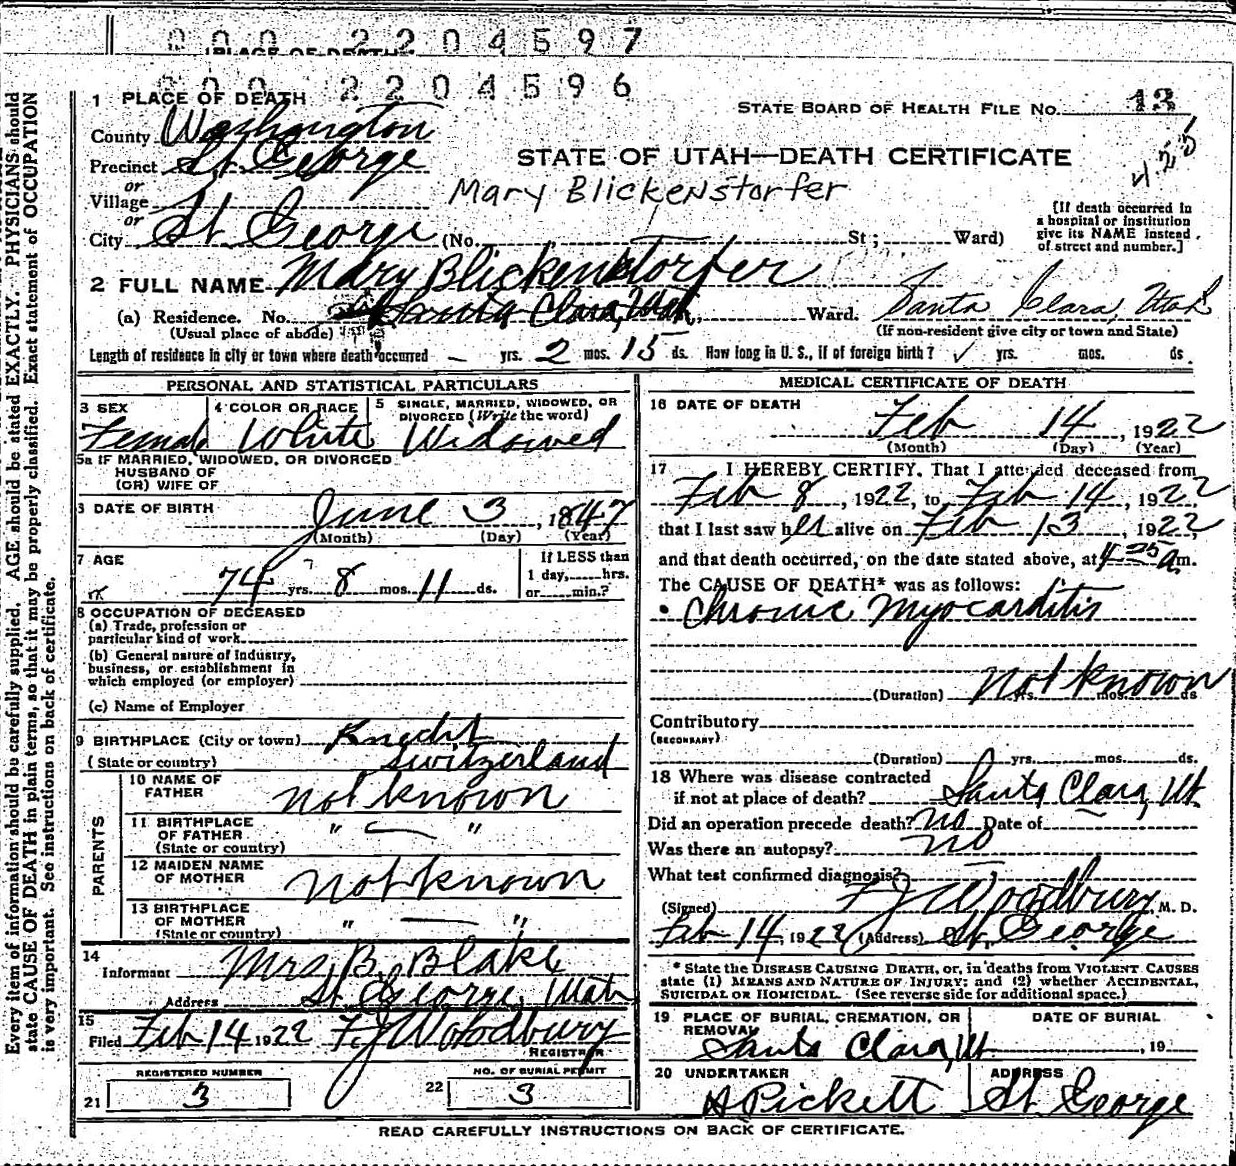 000 2204597
PLACE OF DEATH
000 2204596
1 PLACE OF DEATH
STATE BOARD OF HEALTH FILE No. 13
County Washington
4.25
Precinct St. George
STATE OF UTAH—DEATH CERTIFICATE
or
Village
Mary Blickenstorfer
or
City St George (No. St; Ward)
[If death occurred in a hospital or institution give its NAME instead of street and number.]
2 FULL NAME Mary Blickenstorfer
(a) Residence. No. Santa Clara, Utah, Ward. Santa Clara, Utah
(Usual place of abode) (If non-resident give city or town and State)
Length of residence in city or town where death occurred — yrs. 2 mos. 15 ds. How long in U. S., if of foreign birth? ✓ yrs. mos. ds.
PERSONAL AND STATISTICAL PARTICULARS
3 SEX 4 COLOR OR RACE 5 SINGLE, MARRIED, WIDOWED, OR DIVORCED (Write the word)
Female White Widowed
5a IF MARRIED, WIDOWED, OR DIVORCED
HUSBAND OF
(OR) WIFE OF
6 DATE OF BIRTH June 3, 1847
(Month) (Day) (Year)
7 AGE 74 yrs. 8 mos. 11 ds.
If LESS than
1 day, hrs.
or min.?
8 OCCUPATION OF DECEASED
(a) Trade, profession or
particular kind of work
(b) General nature of industry,
business, or establishment in
which employed (or employer)
(c) Name of Employer
9 BIRTHPLACE (City or town)
(State or country) Switzerland
PARENTS
10 NAME OF FATHER not known
11 BIRTHPLACE OF FATHER (State or country) " — "
12 MAIDEN NAME OF MOTHER not known
13 BIRTHPLACE OF MOTHER (State or country) " — "
14
Informant Mrs. B. Blake
Address St George, Utah
15
Filed Feb 14 1922 F. J. Woodbury
REGISTRAR
REGISTERED NUMBER NO. OF BURIAL PERMIT
21 3 22 3
MEDICAL CERTIFICATE OF DEATH
16 DATE OF DEATH
Feb 14, 1922
(Month) (Day) (Year)
17 I HEREBY CERTIFY, That I attended deceased from
Feb 8, 1922, to Feb 14, 1922
that I last saw her alive on Feb 13, 1922,
and that death occurred, on the date stated above, at 4 25 a m.
The CAUSE OF DEATH* was as follows:
Chronic Myocarditis
(Duration) not known yrs. mos. ds
Contributory
(SECONDARY)
(Duration) yrs. mos. ds.
18 Where was disease contracted
if not at place of death? Santa Clara, Ut.
Did an operation precede death? no Date of
Was there an autopsy? no
What test confirmed diagnosis?
(Signed) F J Woodbury M. D.
Feb 14, 1922 (Address) St. George
* State the DISEASE CAUSING DEATH, or, in deaths from VIOLENT CAUSES
state (1) MEANS AND NATURE OF INJURY; and (2) whether ACCIDENTAL,
SUICIDAL OR HOMICIDAL. (See reverse side for additional space.)
19 PLACE OF BURIAL, CREMATION, OR REMOVAL DATE OF BURIAL
Santa Clara, Ut. , 19
20 UNDERTAKER ADDRESS
A Pickett St. George
READ CAREFULLY INSTRUCTIONS ON BACK OF CERTIFICATE.
Every item of information should be carefully supplied. AGE should be stated EXACTLY. PHYSICIANS should
state CAUSE OF DEATH in plain terms, so that it may be properly classified. Exact statement of OCCUPATION
is very important. See instructions on back of certificate.